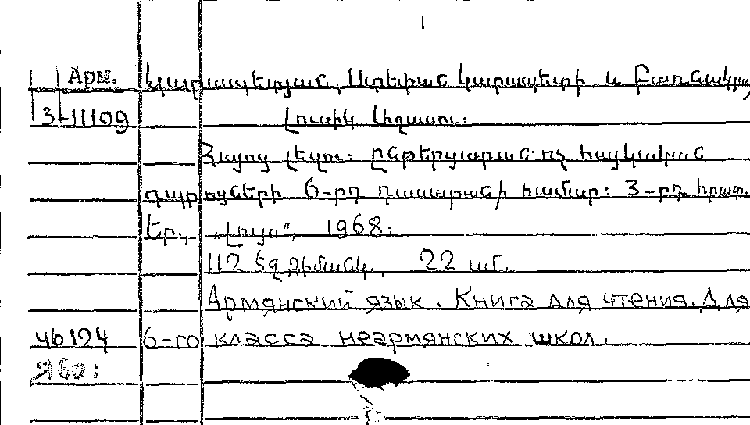 Арм. Կարապետյան, Ստեփան Կարապետի և
3-11109 Լուսիկ
Հայոց լեզու: Ընթերցարան ոչ հայկական
դպրոցների 6-րդ դասարանի համար: 3-րդ հրատ.
Եր., „Լույս", 1968:
112 եզ դիմանկ. 22 սմ.
Армянский язык. Книга для чтения. Для
46194 6-го класса неармянских школ.